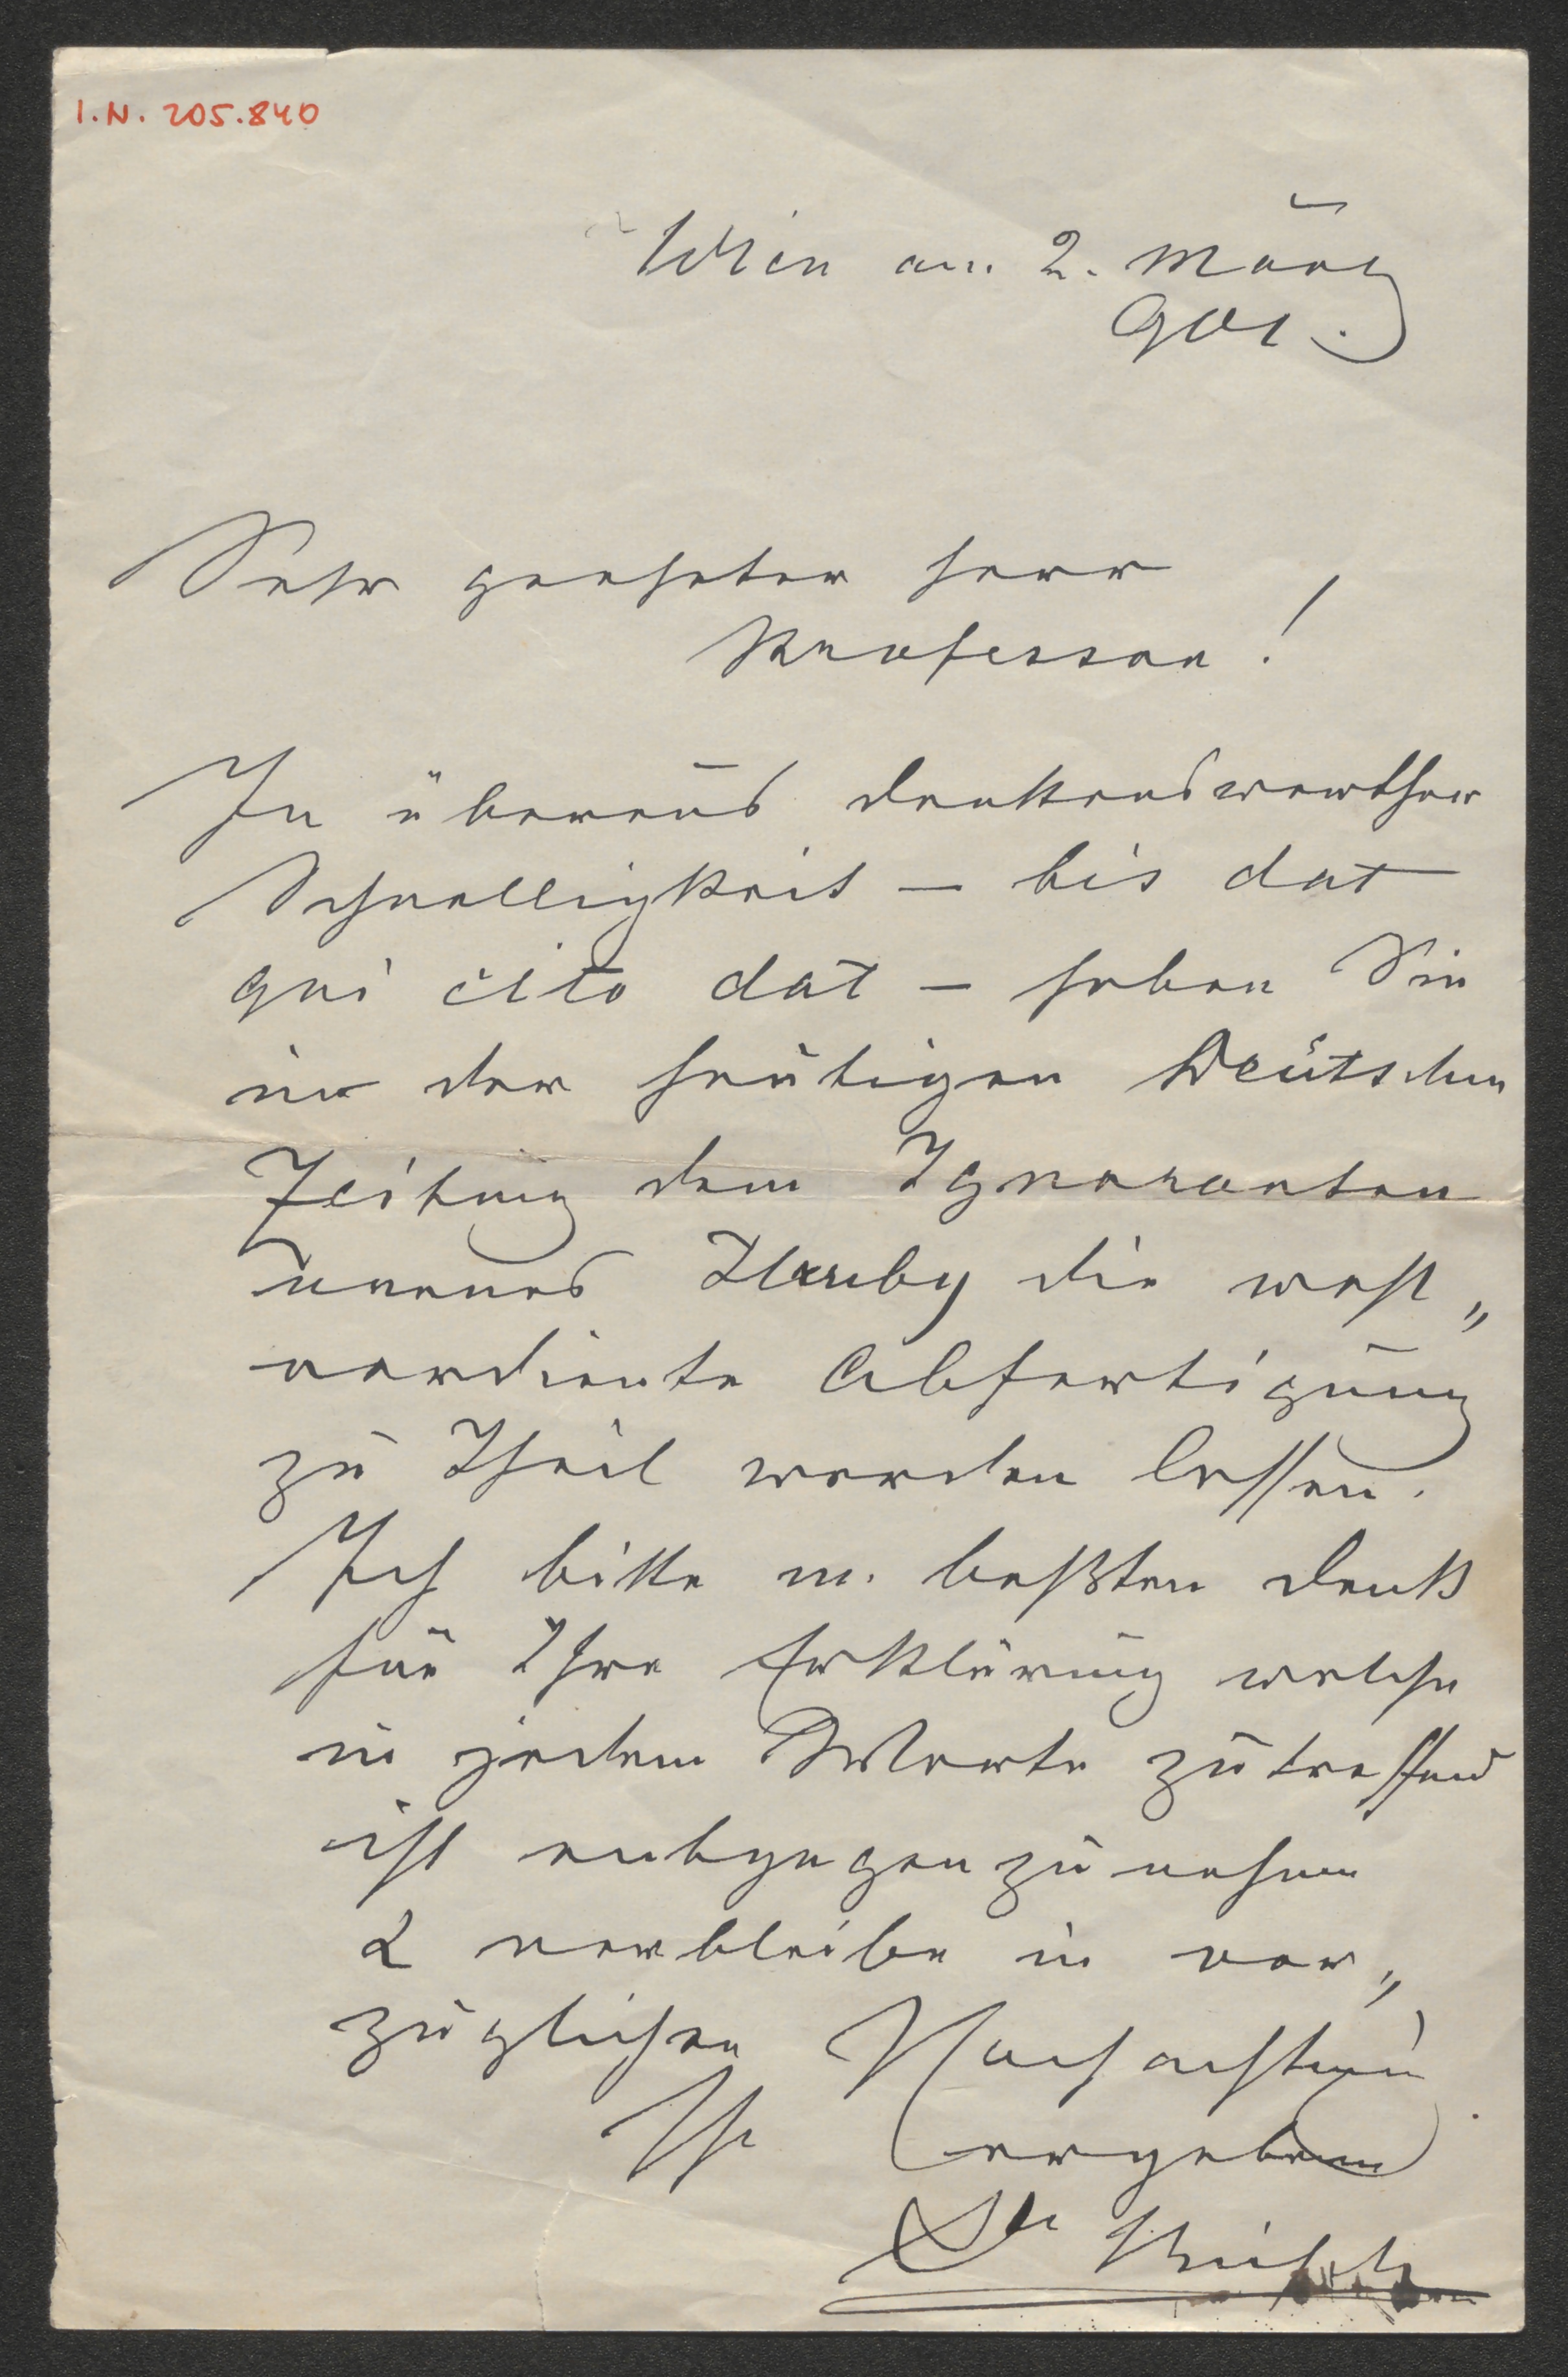 I.N. 205.840
Wien am 2. März
901.
Sehr geehrter Herr
Professor!
In überaus dankenswerther
Schnelligkeit – bis dat
qui cito dat – haben Sie
in der heutigen Deutschen
Zeitung dem Ignoranten
Hruby die wohl„
verdiente Abfertigung
zu Theil werden lassen.
Ich bitte m. beßten Dank
für Ihre Erklärung welche
in jedem Worte zutreffend
ist entgegenzunehmen
& verbleibe in vor„
züglicher Hochachtung
Ihr ergebener
Dr